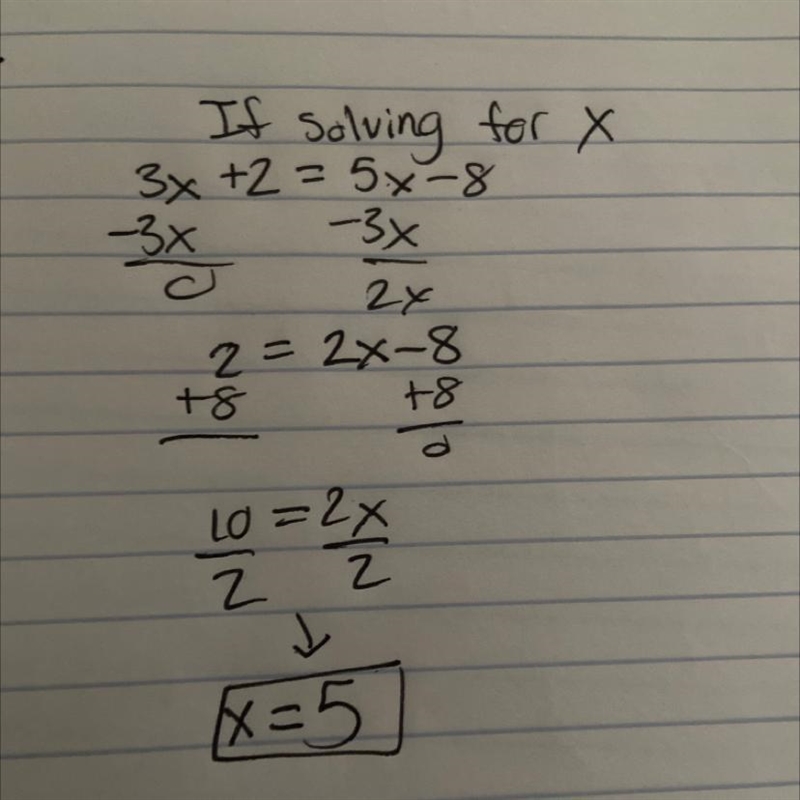 If solving for x
3x +2 = 5x-8
-3x -3x
0 2x
2 = 2x-8
+8 +8
0
10 = 2x
2 2
↓
x=5